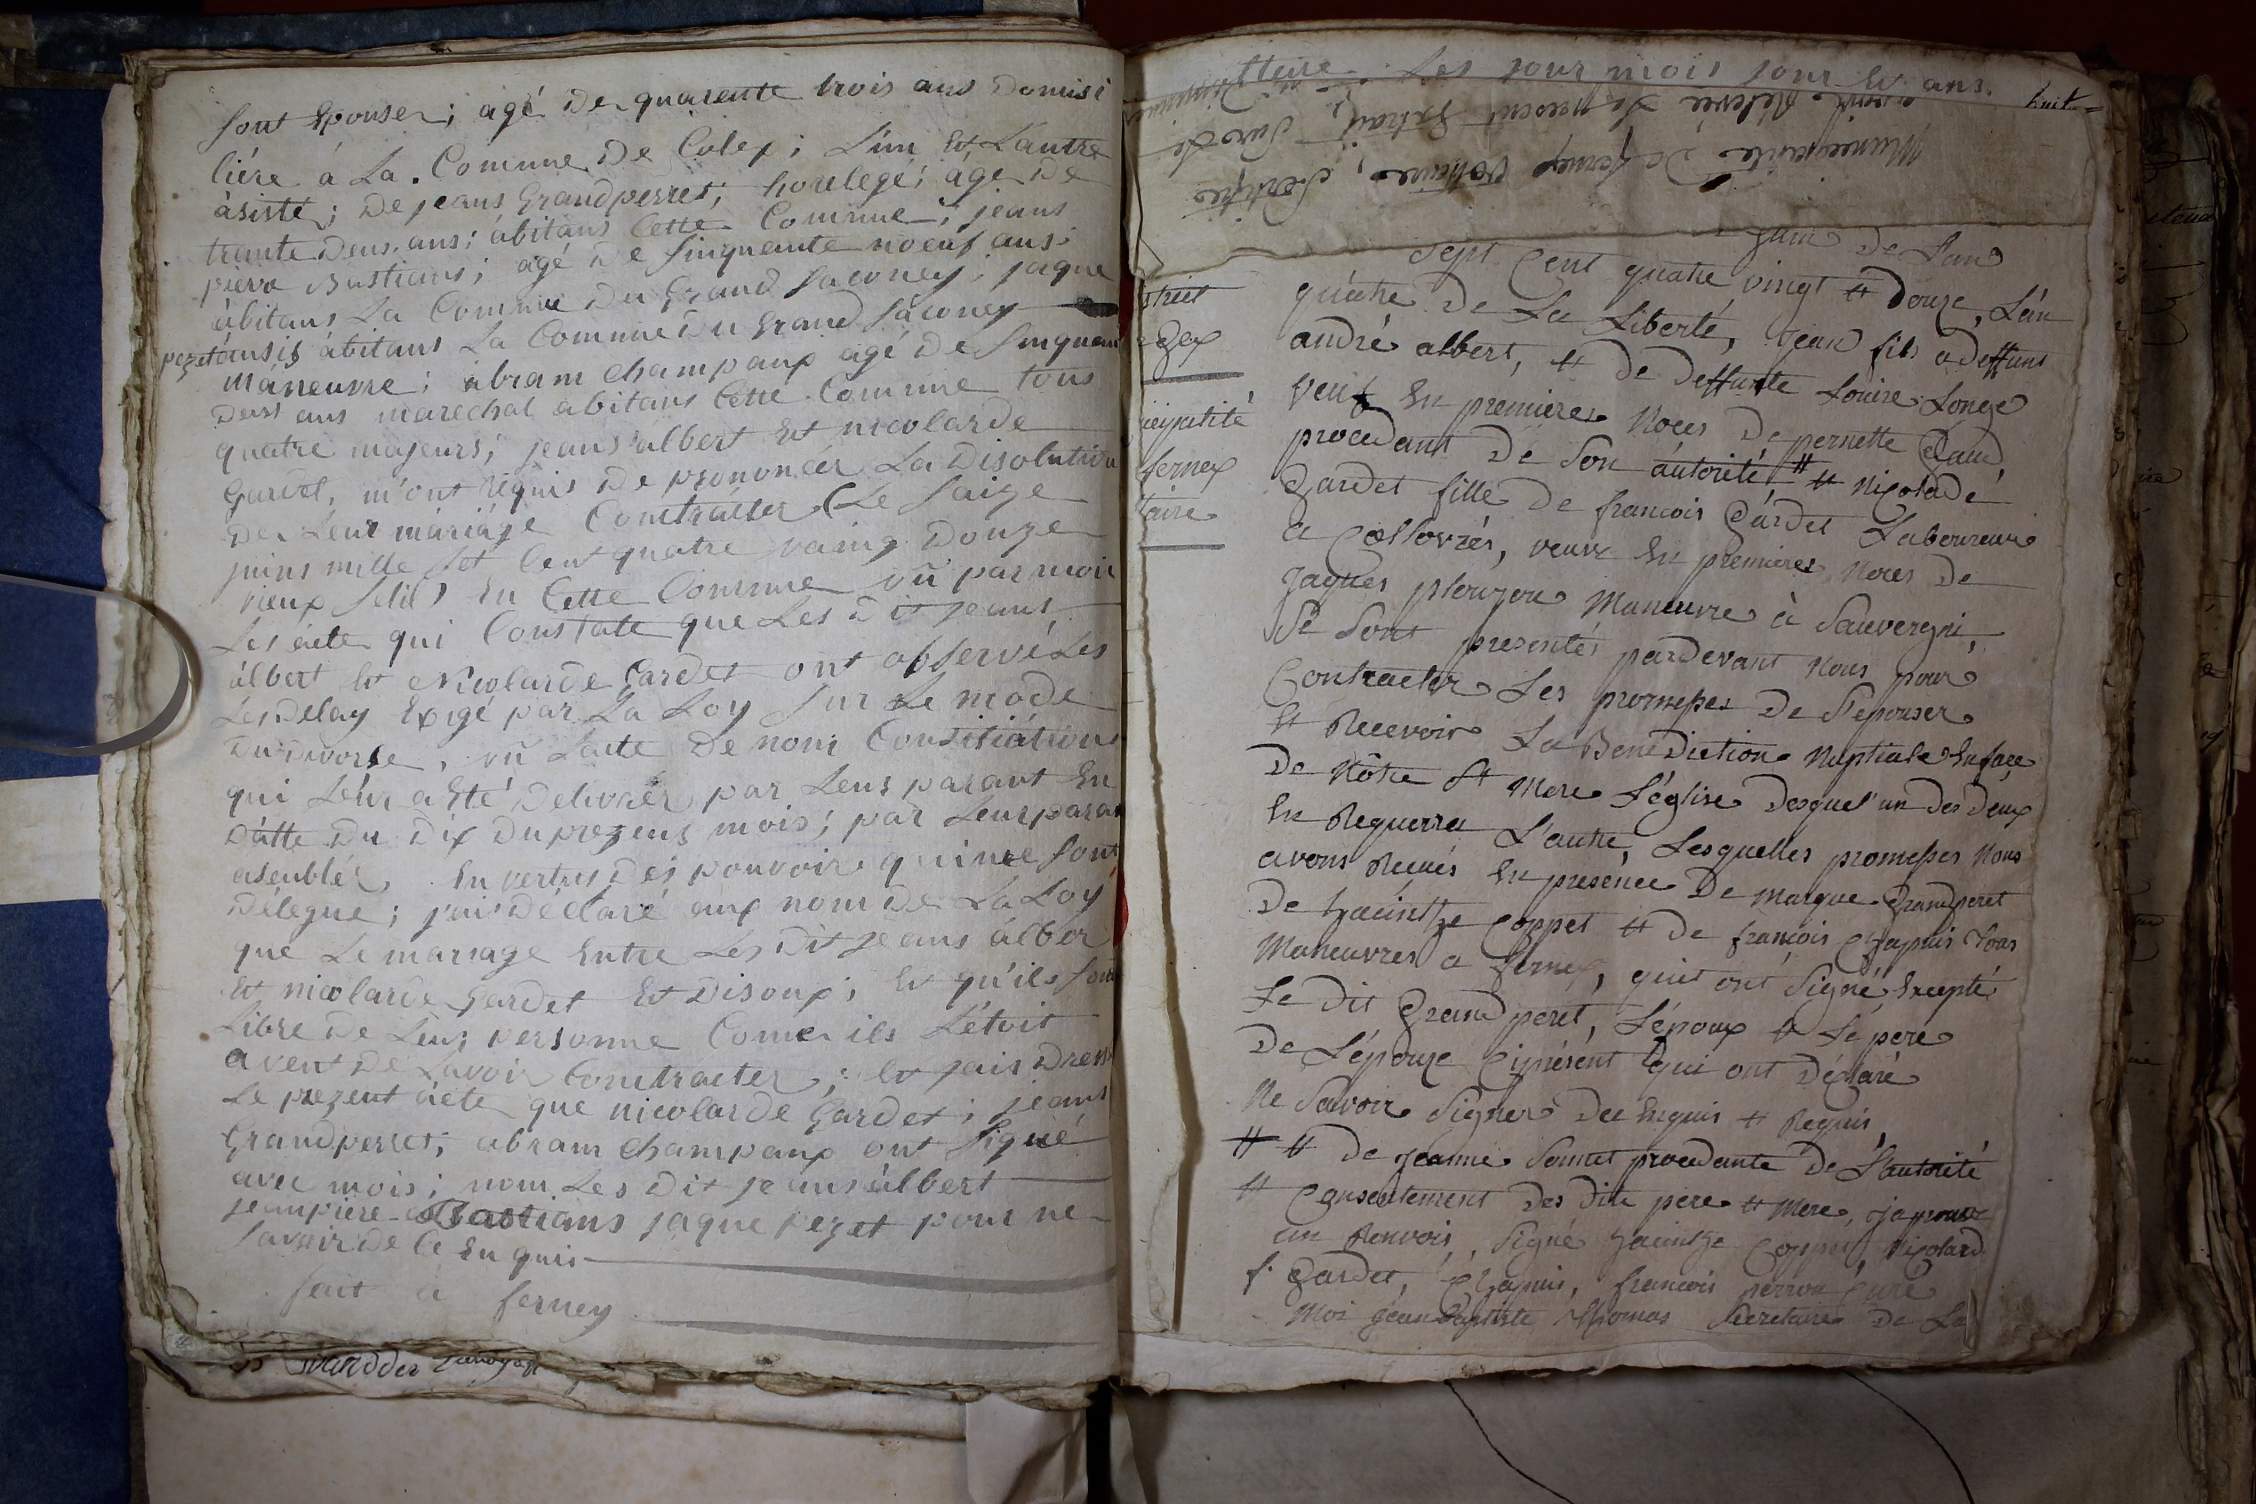 sont Epouser; agé De quarente trois ans Domisi
liére á La Comune De Colex; L'un Et L'autre
àsisté; De jeans Grandperret; horelegé; àgé De
trante Deus ans; àbitans Cette Comune; jeans
pierre Bastians; agé De sinquante noeuf ans;
àbitans La Comune Du Grand Saconey; jaque
pezet ansis àbitans La Comune Du Grand Saconey
máneuvre; abram Champaux agé De sinquan
Deus ans marechal abitans Cette Comune tous
quatre majeurs; jeans albert Et nicolarde
Gardet, m'ont Requis De prononcer La Disolution
De Leur màriàge Contràcter (Le saize
juins mille set Cent quatre vaing Douze
vieux stil) En Cette Comune vû par moi
Les àcte qui Constate que Les Dit jeans
àlbert Et Nicolarde Gardet ont observé Les
Les Delay Exigé par La Loy sur Le mode
Du Divorse, vû L'acte De nom Consisiátion
qui Leur a Eté Delivrér par Leus parant En
Dàtte Du Dix Du prezens mois; par Leur paran
asemblér En vertus Des pouvoir qui me sont
Délegué; j'ais Déclaré aux nom De La Loy
que Le mariage Entre Les Dit jeans àlber
Et nicolarde Gardet Et Disoux; Et qu'ils son
Libre De Leur personne Come ils L'étoit
avent De L'avoir Contracter; Et jais Dress
Le prezent àcte que nicolarde Gardet; jeans
Grandperret; abram Champaux ont signé
avec mois; nom Les Dit jeans àlbert
jeanpiere Bastians jaque pezet pour ne
savoir De Ce En quis
fait à ferney
Les jour mois sour Et ans.
huit
Municipalité De ferney Voltaire, Certifie
avoir Relevé Le present Extrait, Sur le
juin De L'an
sept Cent quatre vingt Et Douze, L'an
quatre De La Liberté, Jean fils a Deffunt
andré albert, Et De Deffunte Louise Longe
veuf En premieres Noces De pernette Chaud,
procedant De Son autorité # Et Nicolade
Gardet fille De francois Gardet Laboureur
a Collovrés, veuve En premieres Noces De
Jaques plouzou Maneuvre à Sauvergni,
Se Sont presentés pardevant Nous pour
Contracter Les promesses De S'epouser
Et Recevoir La Benediction Nuptiale En face
De Nôtre St Mere L'église Desquel'un des Deux
En Requerra L'autre, Lesquelles promesses Nous
avons Recues En presence De Marque Grandperet
De hacintze Coppet Et De francois Chapuis tous
Maneuvres a ferney, quit ont Signé Excepté
Le Dit Grandperet, L'époux Et Le pere
De L'épouze Ciprésent qui ont Déclaré
Ne Savoir Signer De ce Enquis Et Requis,
# Et De Jeanne Sonnet procedante De L'autorité
Et Consentement Des Dits pere Et Mere, Japrouve
un Renvois, Signé hacintze Coppet, Nicolard
f. Gardet, Chapuis, francois perron Curé
Moi JeanBaptiste Thomas Secretaire De La
strict
Gex
icipalité
ferney
taire